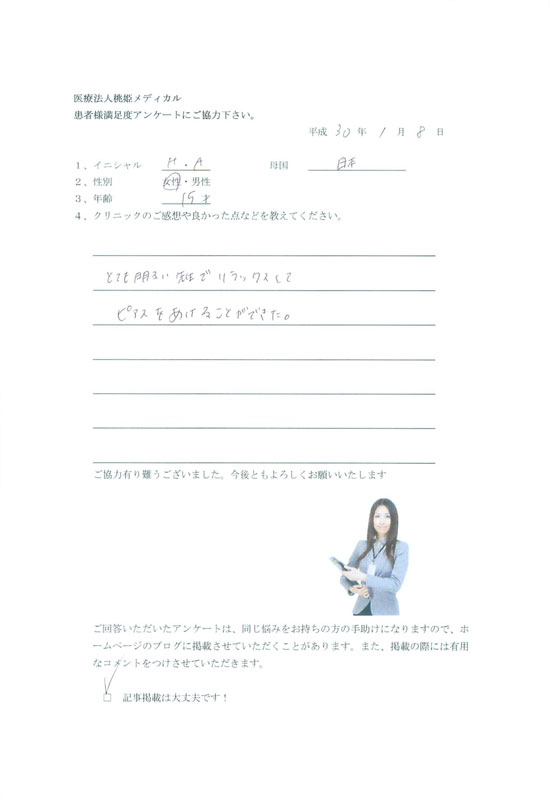 医療法人桃姫メディカル
患者様満足度アンケートにご協力下さい。
平成 30 年 1 月 8 日
1、イニシャル H・A 母国 日本
2、性別 女性・男性
3、年齢 19才
4、クリニックのご感想や良かった点などを教えてください。
とても明るい先生でリラックスして
ピアスをあけることができた。
ご協力有り難うございました。今後ともよろしくお願いいたします
ご回答いただいたアンケートは、同じ悩みをお持ちの方の手助けになりますので、ホ
ームページのブログに掲載させていただくことがあります。また、掲載の際には有用
なコメントをつけさせていただきます。
□ 記事掲載は大丈夫です！